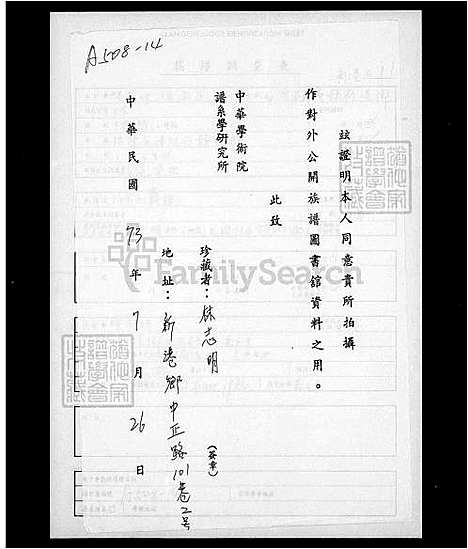 A508-14
茲證明本人同意貴所拍攝
作對外公開族譜圖書館資料之用。
此致
中華學術院
譜系學研究所
珍藏者：林志明（簽章）
地址：新港鄉中正路101巷2号
中華民國73年7月26日
FamilySearch